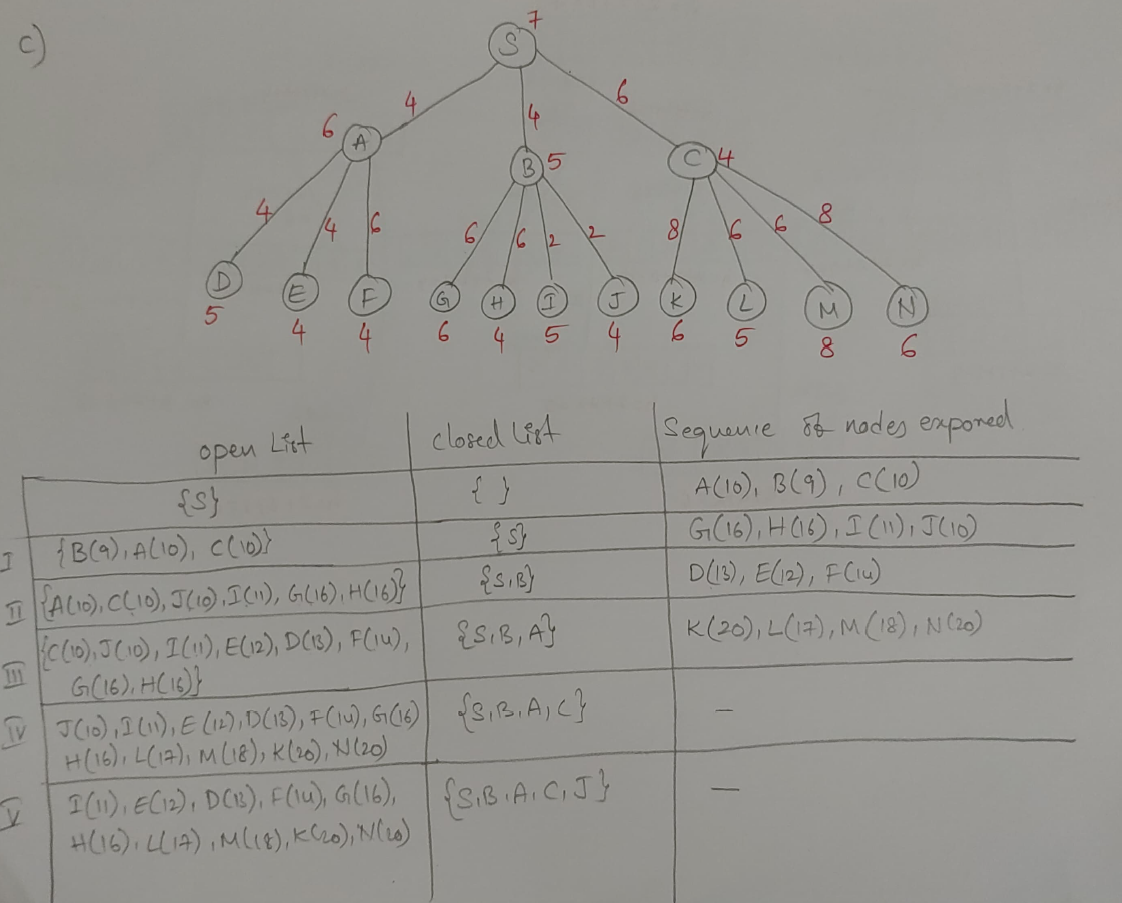 c)
S 7
4 4 6
6 A B 5 C 4
4 4 6 6 6 2 2 8 6 6 8
D E F G H I J K L M N
5 4 4 6 4 5 4 6 5 8 6
open List closed list Sequence of nodes expored
{S} { } A(10), B(9), C(10)
I {B(9), A(10), C(10)} {S} G(16), H(16), I(11), J(10)
II {A(10), C(10), J(10), I(11), G(16), H(16)} {S,B} D(13), E(12), F(14)
III {C(10), J(10), I(11), E(12), D(13), F(14), {S,B,A} K(20), L(17), M(18), N(20)
G(16), H(16)}
IV J(10), I(11), E(12), D(13), F(14), G(16) {S,B,A,C} —
H(16), L(17), M(18), K(20), N(20)
V I(11), E(12), D(13), F(14), G(16), {S,B,A,C,J} —
H(16), L(17), M(18), K(20), N(20)